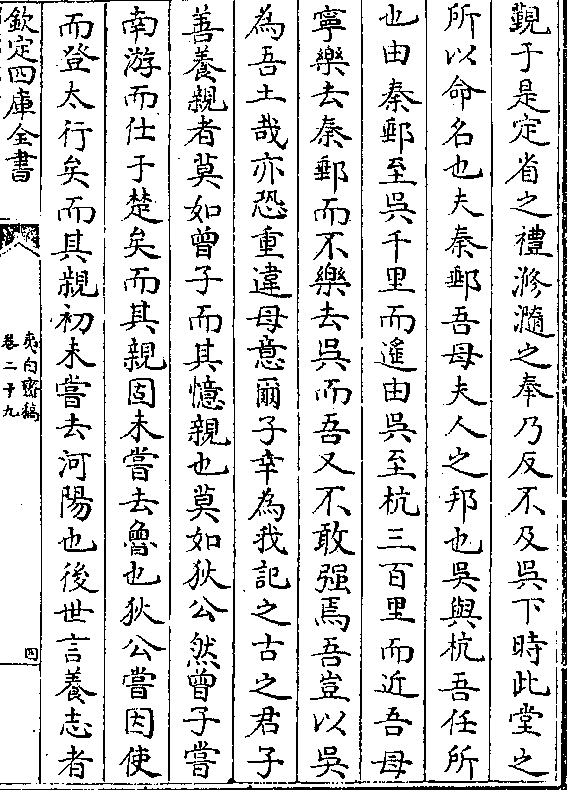 覲于是定省之禮滫瀡之奉乃反不及吳下時此堂之
所以命名也夫秦郵吾母夫人之邦也吳與杭吾任所
也由秦郵至吳千里而遙由吳至杭三百里而近吾母
寧樂去秦郵而不樂去吳而吾又不敢强焉吾豈以吳
為吾土哉亦恐重違母意爾子幸為我記之古之君子
善養親者莫如曾子而其憶親也莫如狄公然曾子嘗
南游而仕于楚矣而其親固未嘗去魯也狄公嘗因使
而登太行矣而其親初未嘗去河陽也後世言養志者
欽定四庫全書
夷白齋稿
卷二十九
四